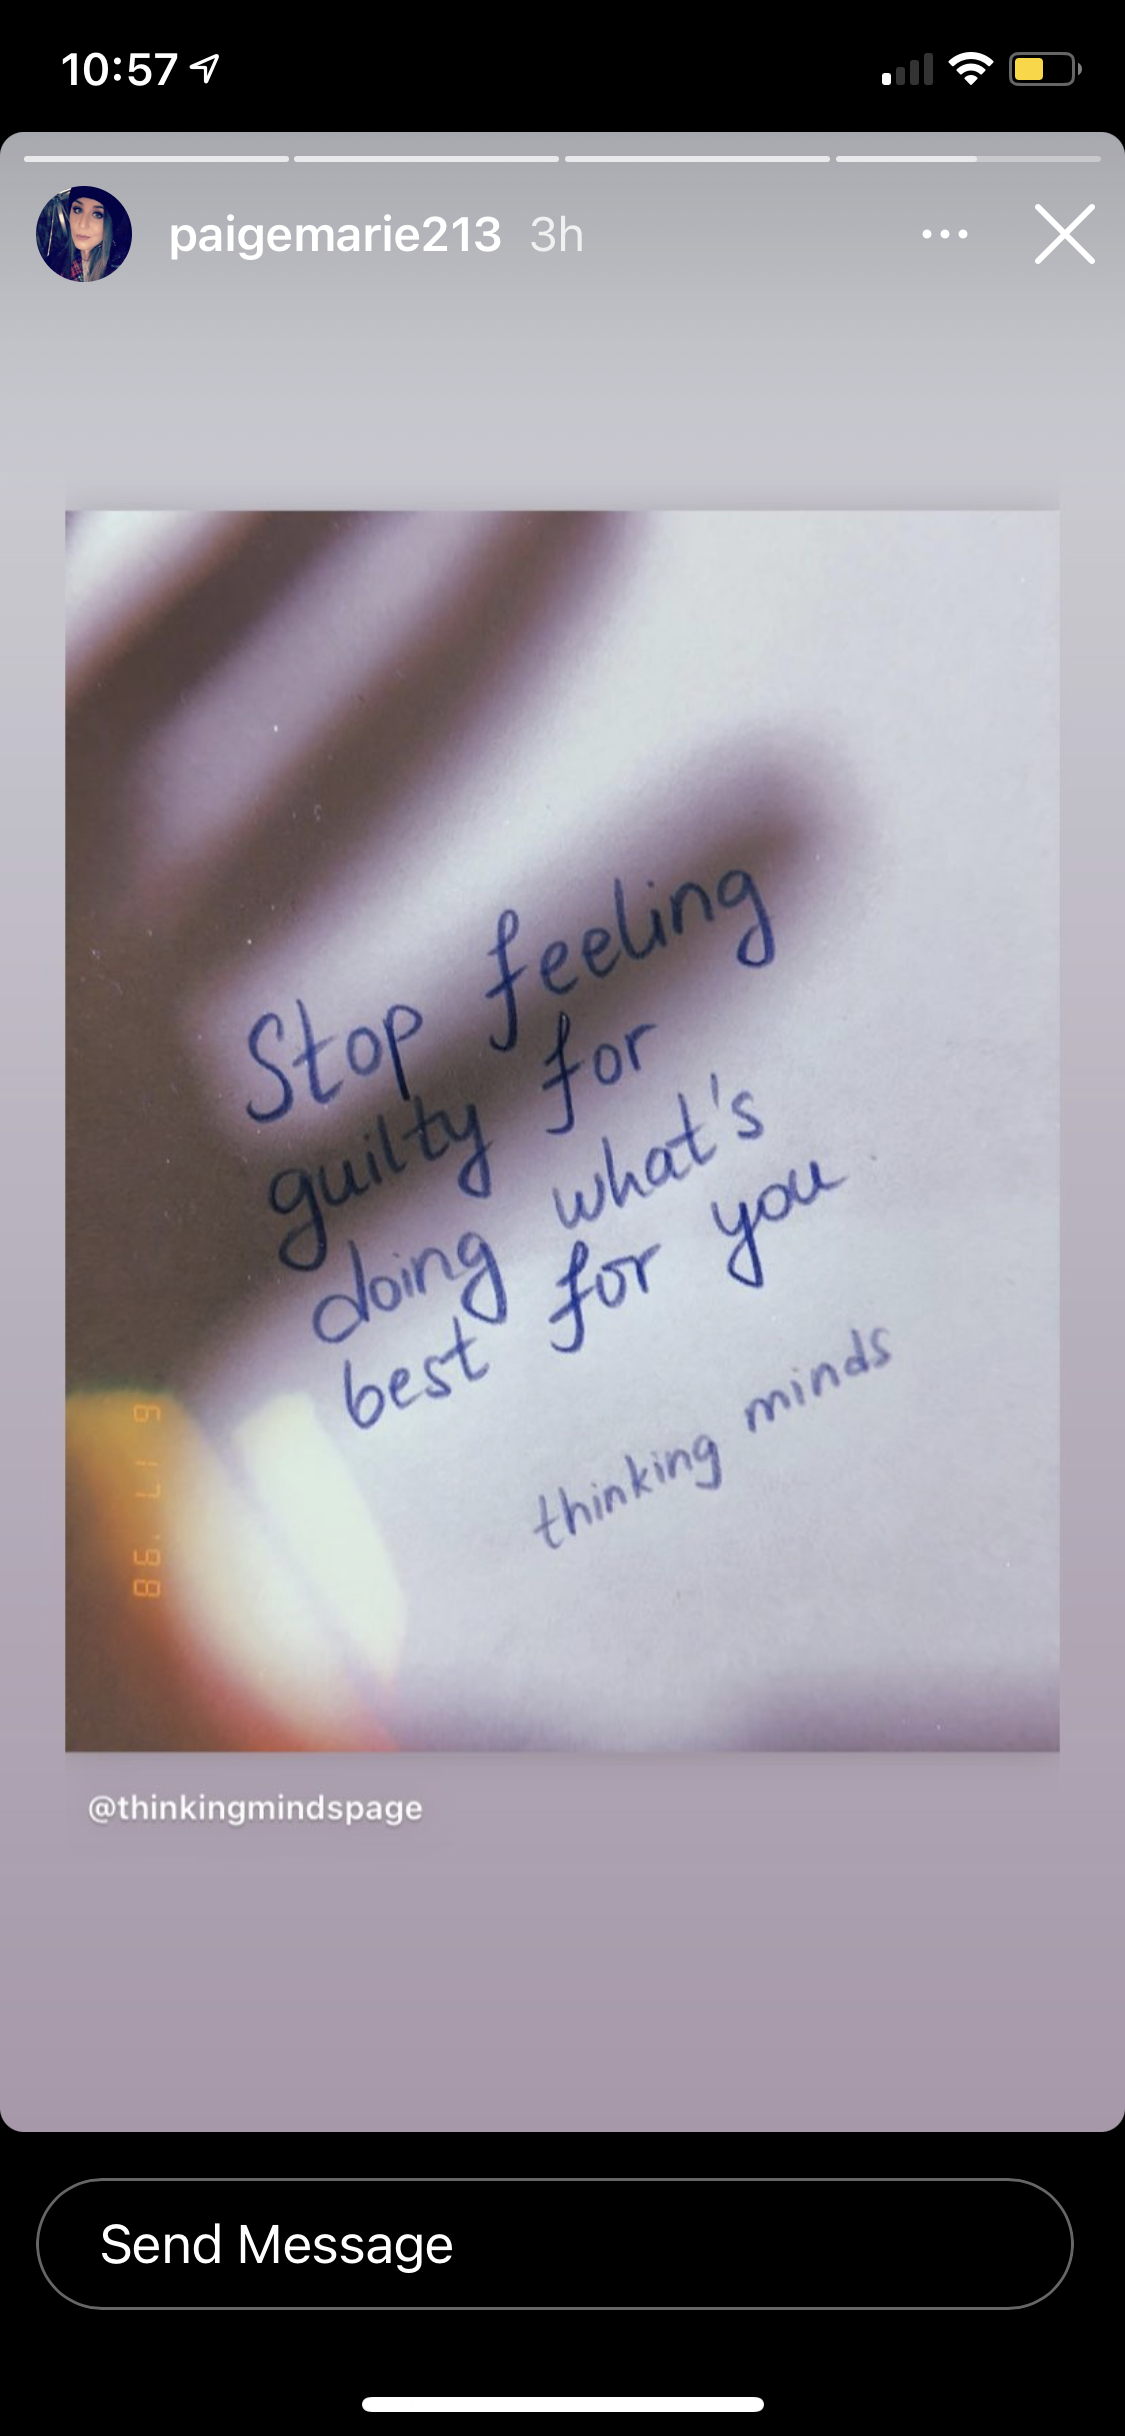 10:57
paigemarie213 3h
Stop feeling
guilty for
doing what's
best for you
thinking minds
6 17 '98
@thinkingmindspage
Send Message